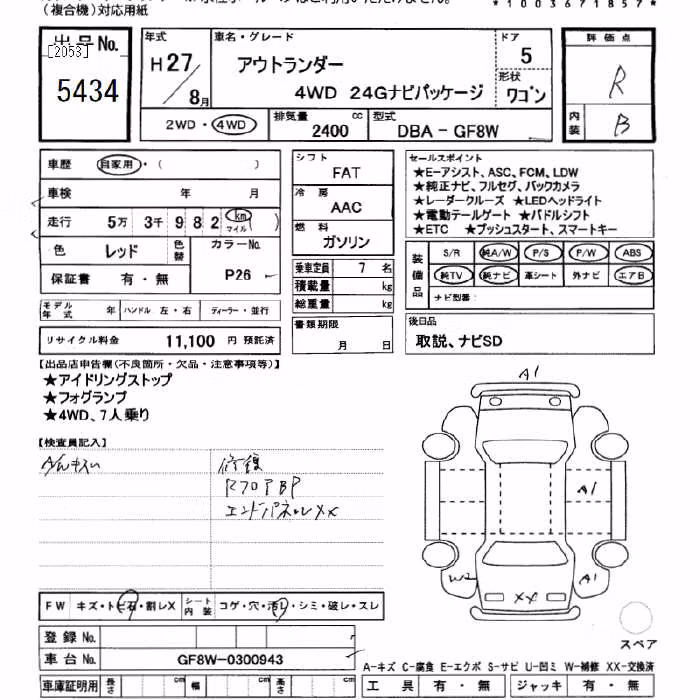 (複合機)対応用紙
*1003671857*
出品No.
[2053]
5434
年式
H27/8月
車名・グレード
アウトランダー
4WD 24Gナビパッケージ
ドア
5
形状
ワゴン
評価点
R
内装
B
2WD・4WD
排気量
2400 cc
型式
DBA - GF8W
車歴 自家用・( )
車検 年 月
走行 5万 3千 9 8 2 km マイル( )
色 レッド 色替 カラーNo.
P26
保証書 有・無
モデル年式 年 ハンドル 左・右 ディーラー・並行
リサイクル料金 11,100 円 預託済
シフト
FAT
冷房
AAC
燃料
ガソリン
乗車定員 7 名
積載量 kg
総重量 kg
書類期限
月 日
セールスポイント
★E-アシスト、ASC、FCM、LDW
★純正ナビ、フルセグ、バックカメラ
★レーダークルーズ ★LEDヘッドライト
★電動テールゲート ★パドルシフト
★ETC ★プッシュスタート、スマートキー
装備品
S/R 純A/W P/S P/W ABS
純TV 純ナビ 革シート 外ナビ エアB
ナビ型番:
後日品
取説、ナビSD
【出品店申告欄(不良箇所・欠品・注意事項等)】
★アイドリングストップ
★フォグランプ
★4WD、7人乗り
【検査員記入】
修復
エンドパネルXX
A1
A1
A1
W2
XX
FW キズ・トビ石・割レX シート内装 コゲ・穴・汚レ・シミ・破レ・スレ
登録No.
車台No. GF8W-0300943
車庫証明用 長さ cm 幅 cm 高さ cm
スペア
A-キズ C-腐食 E-エクボ S-サビ U-凹ミ W-補修 XX-交換済
工具 有・無 ジャッキ 有・無